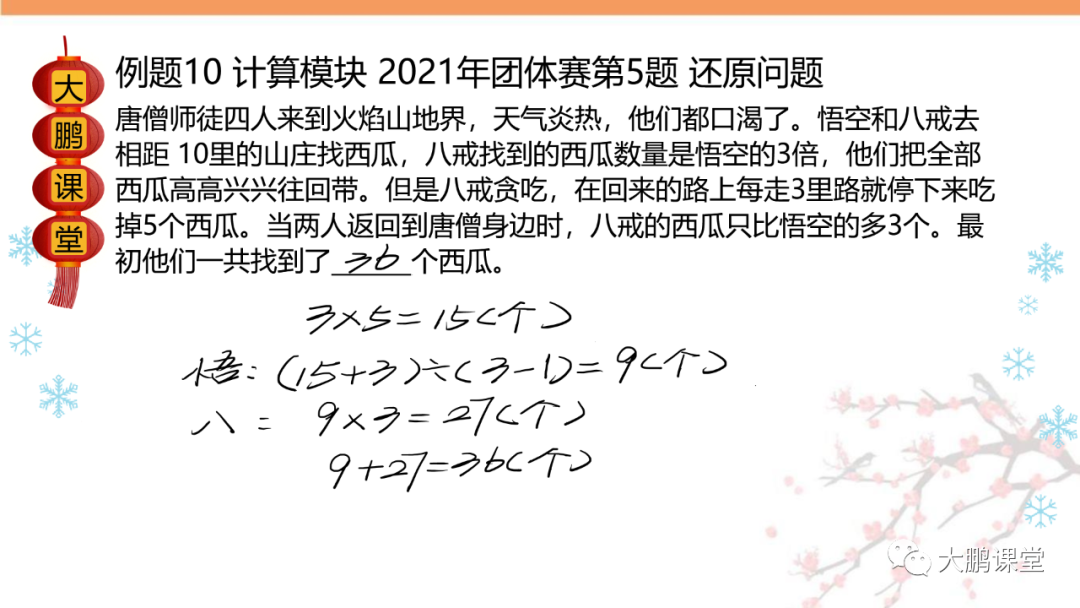 大鹏课堂
例题10 计算模块 2021年团体赛第5题 还原问题
唐僧师徒四人来到火焰山地界，天气炎热，他们都口渴了。悟空和八戒去
相距 10里的山庄找西瓜，八戒找到的西瓜数量是悟空的3倍，他们把全部
西瓜高高兴兴往回带。但是八戒贪吃，在回来的路上每走3里路就停下来吃
掉5个西瓜。当两人返回到唐僧身边时，八戒的西瓜只比悟空的多3个。最
初他们一共找到了36个西瓜。
3×5=15(个)
悟:(15+3)÷(3-1)=9(个)
八: 9×3=27(个)
9+27=36(个)
大鹏课堂